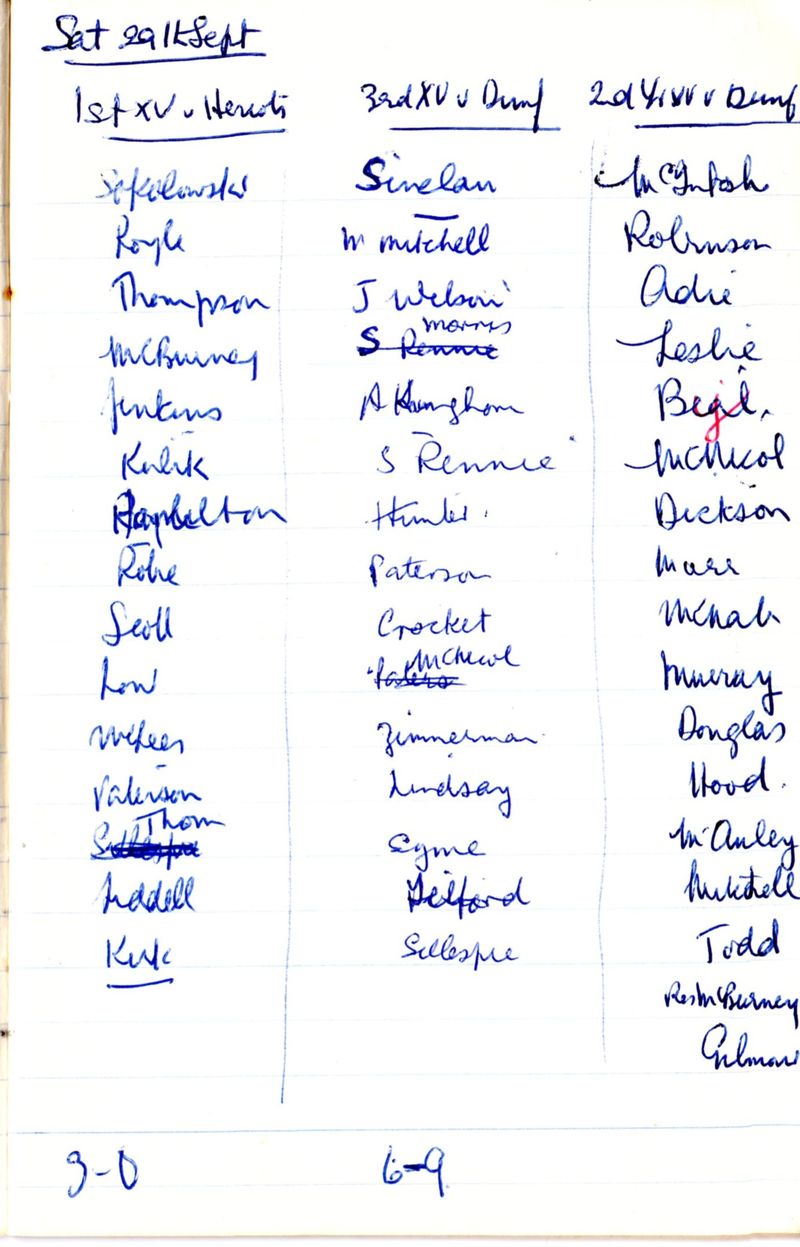 Sat 29th Sept
1st XV v Heriots
Sokolowski
Royle
Thompson
McBurney
Jenkins
Kulik
Robe
Scott
Low
McLees
Paterson
Thom
Liddell
Kirk
3-0
3rd XV v Dunf
Sinclair
M Mitchell
J Wilson
Morris
S Rennie
A
S Rennie
Hunter
Paterson
Crocket
McNicol
Zimmerman
Lindsay
Syme
Telford
Gillespie
6-9
2d Yr XV v Dunf
McIntosh
Robinson
Adie
Leslie
McNicol
Dickson
Marr
McNab
Murray
Douglas
Hood.
McAuley
Mitchell
Todd
Res McBurney
Gilmour